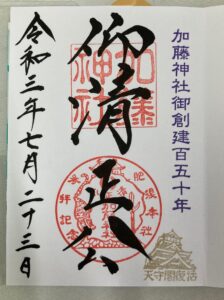 加藤神社御創建百五十年
加藤
神社
仰清正公
天守閣復活
令和三年七月二十三日